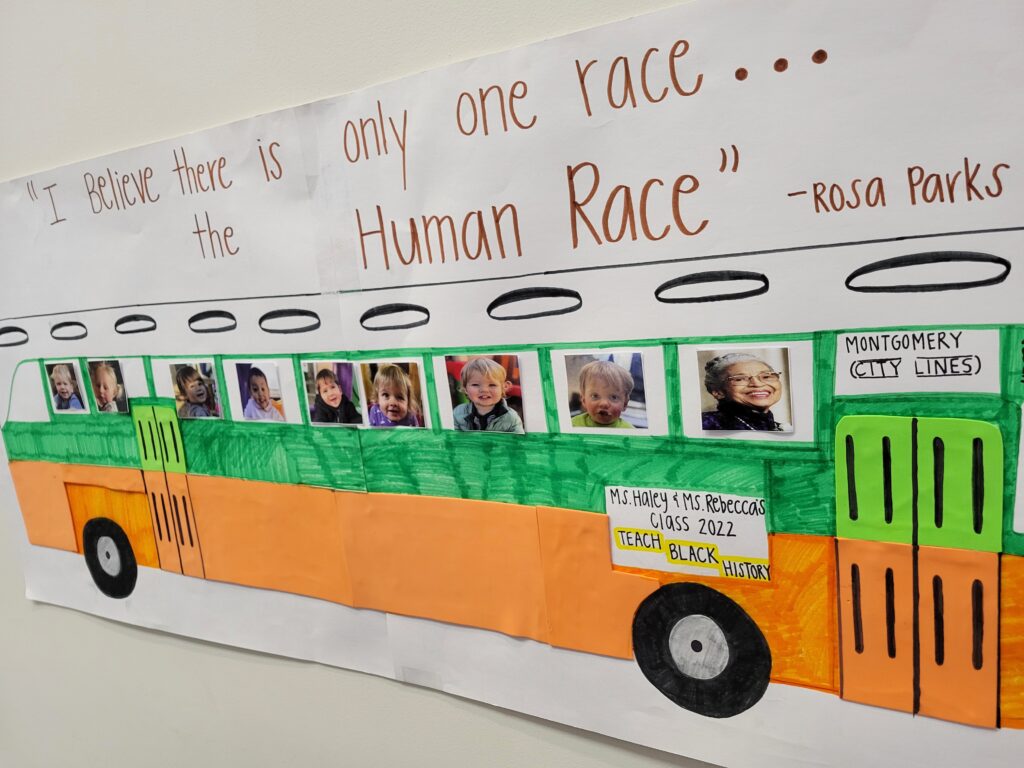 "I Believe there is only one race...
the Human Race" -Rosa Parks
MONTGOMERY
(CITY LINES)
MS. Haley & MS. Rebecca's
Class 2022
TEACH BLACK HISTORY